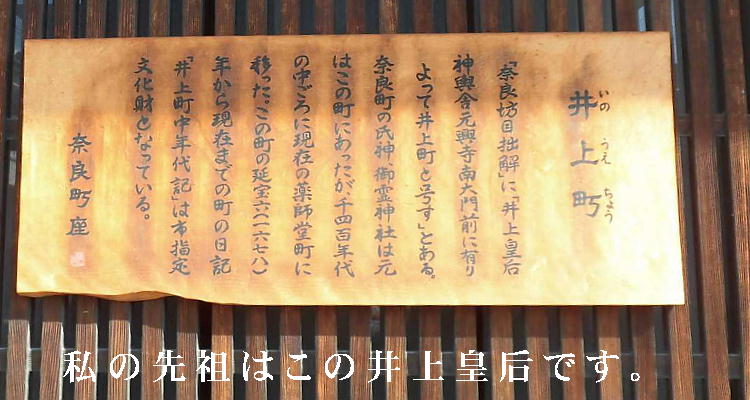 井上町
いの うえ ちょう
「奈良坊目拙解」に「井上皇后
神輿舎元興寺南大門前に有り
よって井上町と号す」とある。
奈良町の氏神御霊神社は元
はこの町にあったが千四百年代
の中ごろに現在の薬師堂町に
移った。この町の延宝六(一六七八)
年から現在までの町の日記
「井上町中年代記」は市指定
文化財となっている。
奈良町座
私の先祖はこの井上皇后です。